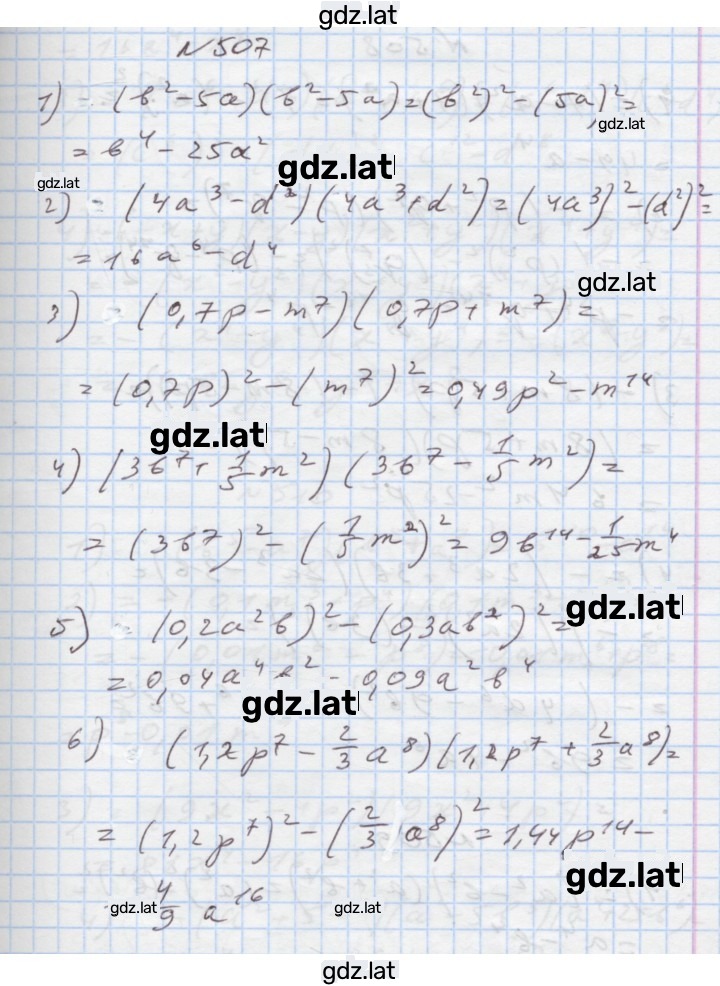 gdz.lat
№507
1) = (b² - 5a)(b² - 5a) = (b²)² - (5a)² =
gdz.lat
= b⁴ - 25a²
gdz.lat
gdz.lat
2) = (4a³ - d²)(4a³ + d²) = (4a³)² - (d²)² =
= 16a⁶ - d⁴
gdz.lat
3) = (0,7p - m⁷)(0,7p + m⁷) =
= (0,7p)² - (m⁷)² = 0,49p² - m¹⁴
gdz.lat
4) (3b⁷ + 1/5 m²)(3b⁷ - 1/5 m²) =
= (3b⁷)² - (1/5 m²)² = 9b¹⁴ - 1/25 m⁴
gdz.lat
5) = (0,2a²b)² - (0,3ab²)² =
= 0,04a⁴b² - 0,09a²b⁴
gdz.lat
6) (1,2p⁷ - 2/3 a⁸)(1,2p⁷ + 2/3 a⁸) =
= (1,2p⁷)² - (2/3 a⁸)² = 1,44p¹⁴ -
gdz.lat
4/9 a¹⁶
gdz.lat
gdz.lat
gdz.lat